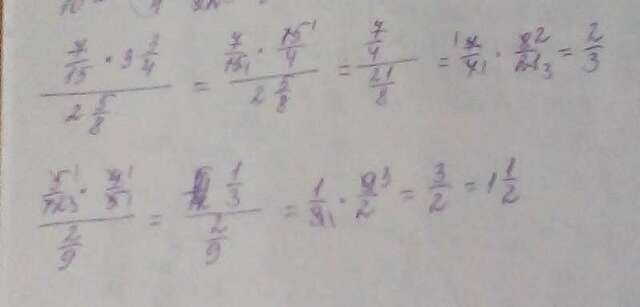 (7/15 · 3 3/4) / (2 5/8) = (7/15 · 15/4) / (2 5/8) = (7/4) / (21/8) = 7/4 · 8/21 = 2/3
(5/12 · 4/5) / (2/9) = (1/3) / (2/9) = 1/3 · 9/2 = 3/2 = 1 1/2